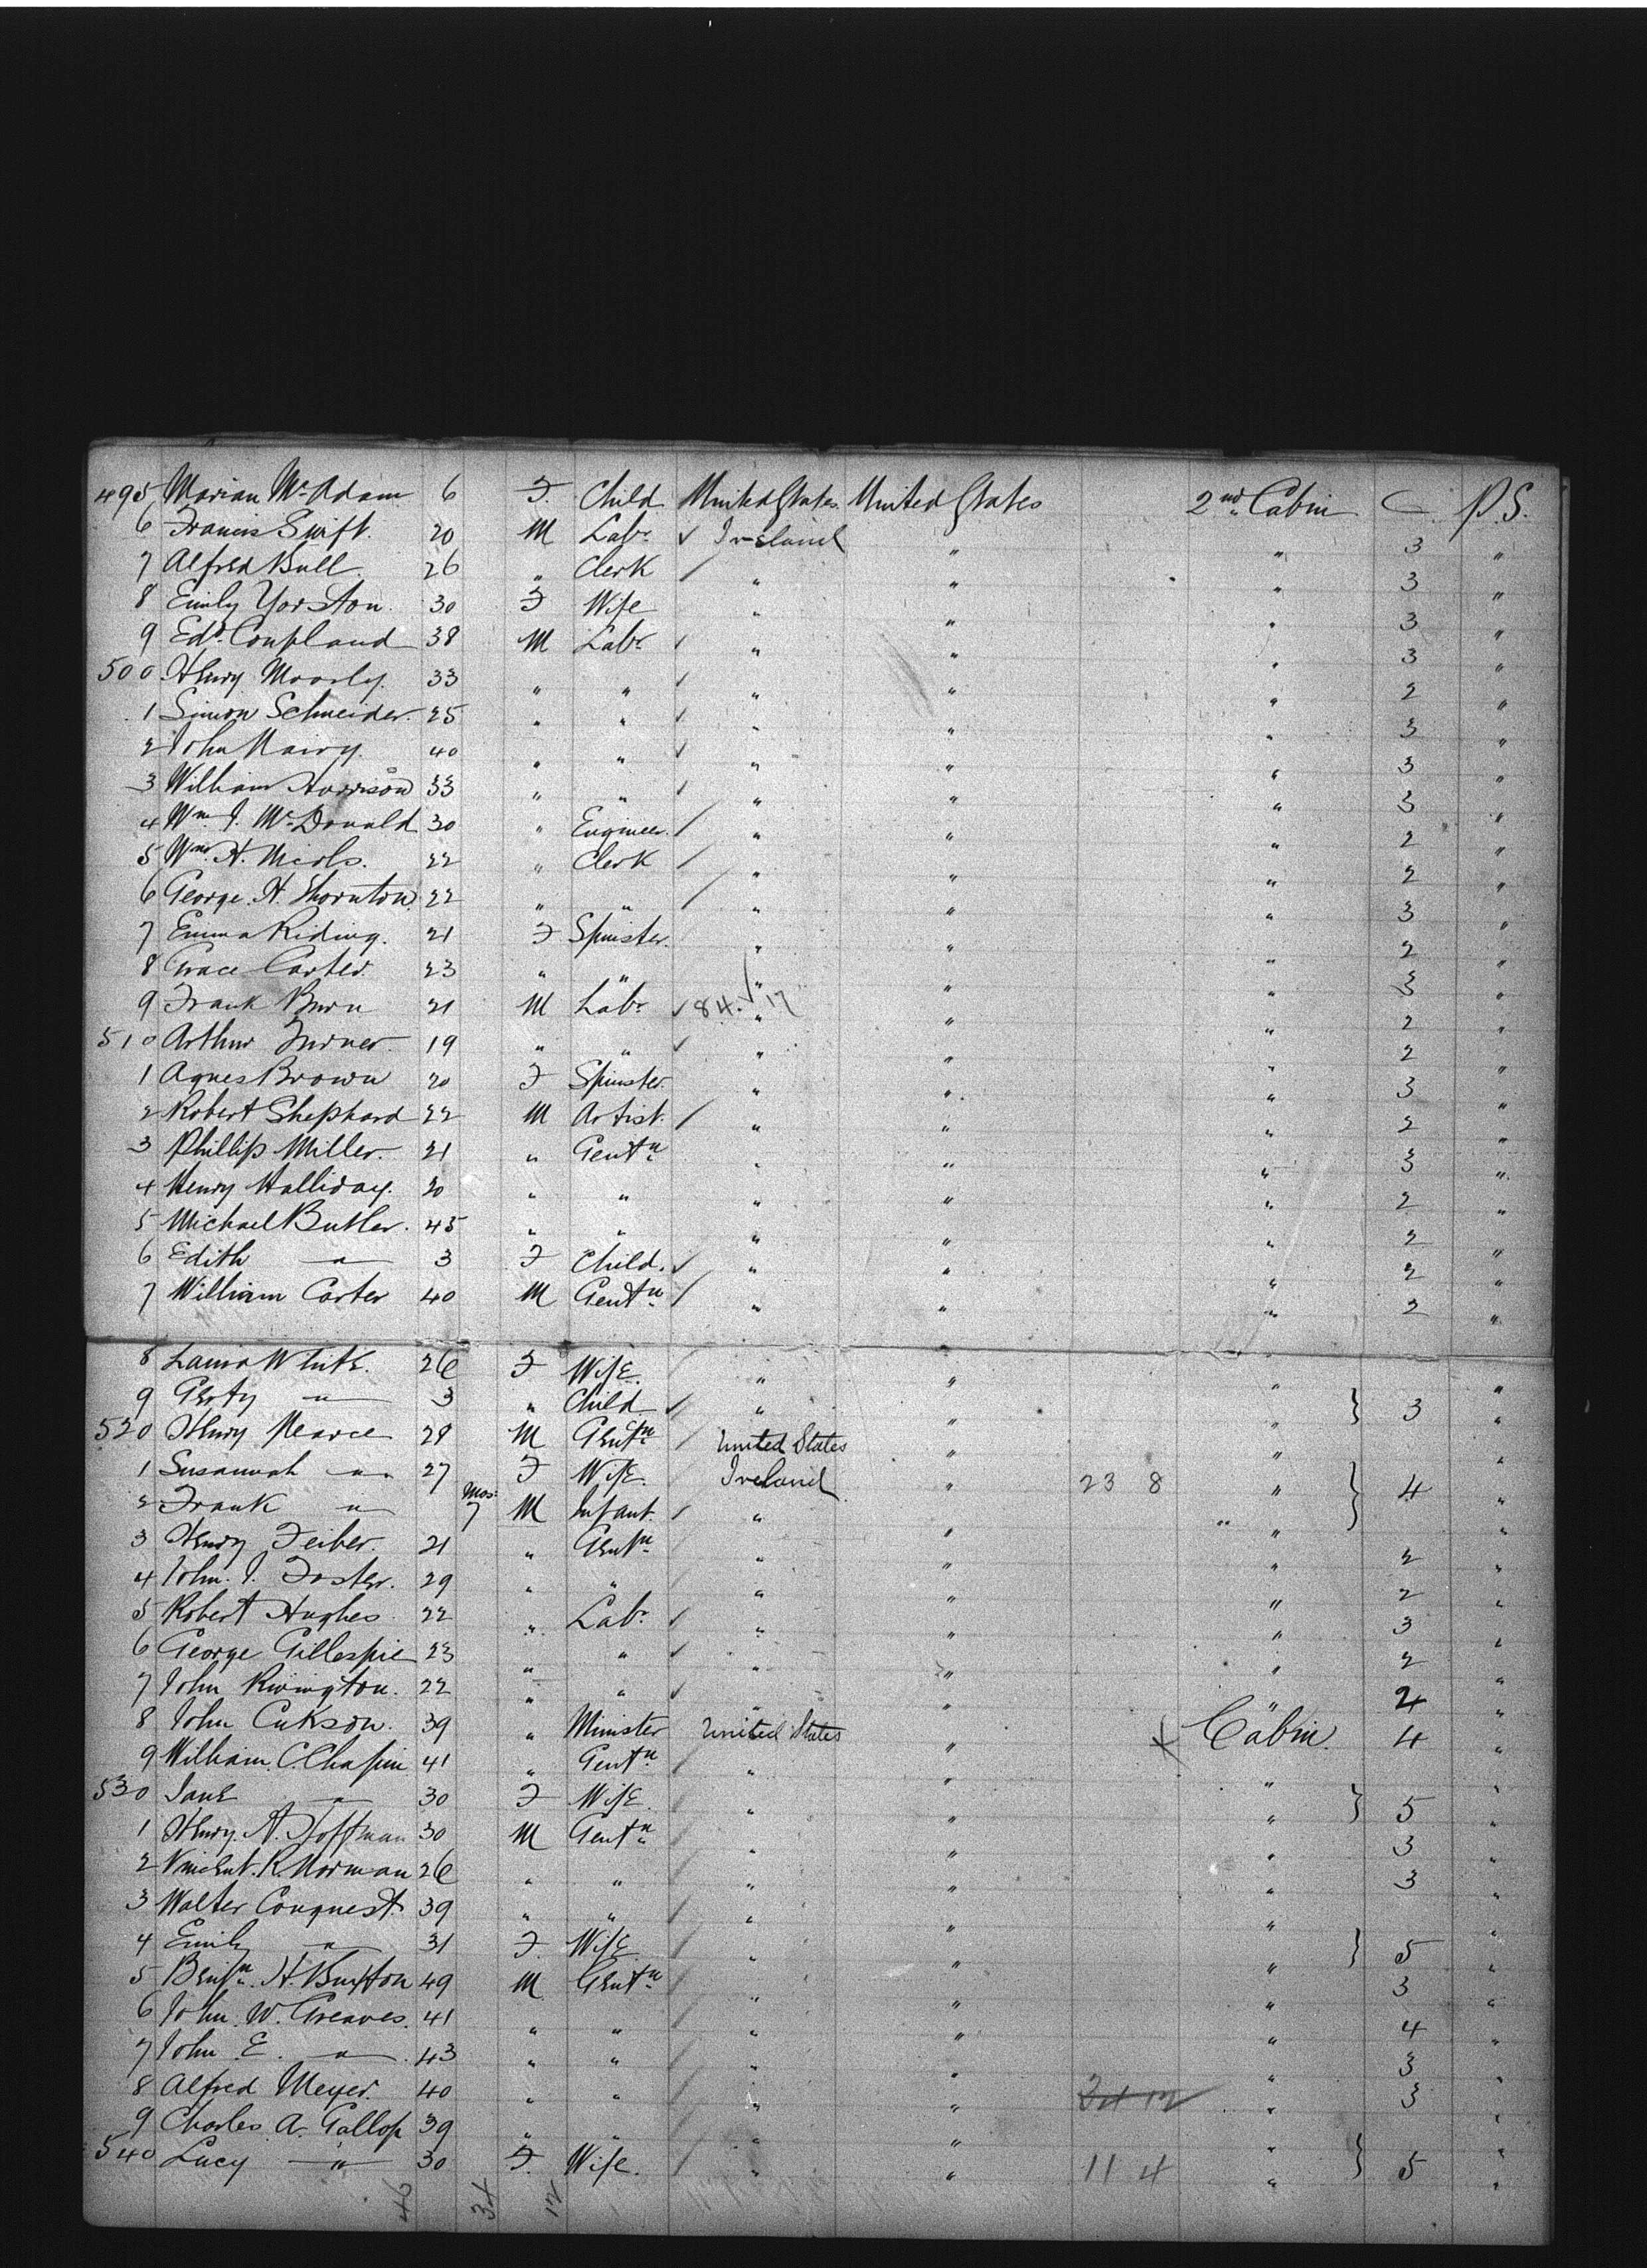 495 Marian McAdam 6 F. Child United States United States 2nd Cabin P.S.
6 Francis Swift. 20 M Labr ✓ Ireland " " 3 "
7 Alfred Bull. 26 " Clerk / " " " 3 "
8 Emily Yorston. 30 F Wife " " " 3 "
9 Edd. Coupland 38 M Labr ✓ " " " 3 "
500 Henry Moorly. 33 " " ✓ " " " 2 "
1 Simon Schneider. 25 " " ✓ " " " 3 "
2 John 40 " " ✓ " " " 3 "
3 William Harrison 33 " " ✓ " " " 3 "
4 Wm. J. McDonald 30 " Engineer. / " " " 2 "
5 Wm. H. 22 " Clerk / " " " 2 "
6 George. H. Thornton 22 " " / " " " 3 "
7 Emma Riding. 21 F Spinster. " " " 2 "
8 Grace Carter. 23 " " " " " 3 "
9 Frank 21 M Labr ✓ 84. 17 " " " 2 "
510 Arthur Turner. 19 " " ✓ " " " 2 "
1 Agnes Brown 20 F Spinster. " " " 3 "
2 Robert Shephard 22 M Artist. / " " " 2 "
3 Phillip Miller. 21 " Gentn " " " 3 "
4 Henry Halliday. 20 " " " " " 2 "
5 Michael Butler. 45 " " " " " 2 "
6 Edith " 3 F Child. ✓ " " " 2 "
7 William Carter 40 M Gentn / " " " 2 "
8 Laura White. 26 F Wife. " " " "
9 Gerty " 3 " Child ✓ " " " } 3 "
520 Henry Pearce 28 M Gentn / United States " " "
1 Susannah " 27 F Wife. Ireland " 23 8 " } 4 "
2 Frank " Mos: 7 M Infant. / " " " "
3 Henry Feiber. 21 " Gentn " " " 2 "
4 John. J. Foster. 29 " " " " " 2 "
5 Robert Hughes 22 " Labr ✓ " " " 3 "
6 George Gillespie 23 " " ✓ " " " 2 "
7 John Rivington. 22 " " ✓ " " " 2 "
8 John Cukson. 39 " Minister United States " Cabin. 4 "
9 William. C. Chapin 41 " Gentn / " " " "
530 Jane " 30 F Wife. " " " } 5 "
1 Henry. A. Hoffman 30 M Gentn / " " " 3 "
2 Vincent. R. Norman 26 " " " " " 3 "
3 Walter Conquest 39 " " / " " " "
4 Emily " 31 F. Wife / " " " } 5 "
5 Benjn. H. Buxton 49 M Gentn " " " 3 "
6 John. W. Greaves. 41 " " / " " " 4 "
7 John E. " 43 " " / " " " 3 "
8 Alfred Meyer. 40 " " / " " 24 12 " 3 "
9 Charles. A. Gallop 39 " " " " " "
540 Lucy " 30 F. Wife. / " " 11 4 " } 5 "
46 34 12